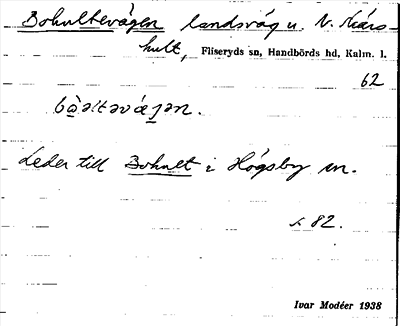 Bohultevägen landsväg u. N. Kärs-
hult, Fliseryds sn, Handbörds hd, Kalm. l.
62
Leder till Bohult i Högsby sn.
s. 82.
Ivar Modéer 1938